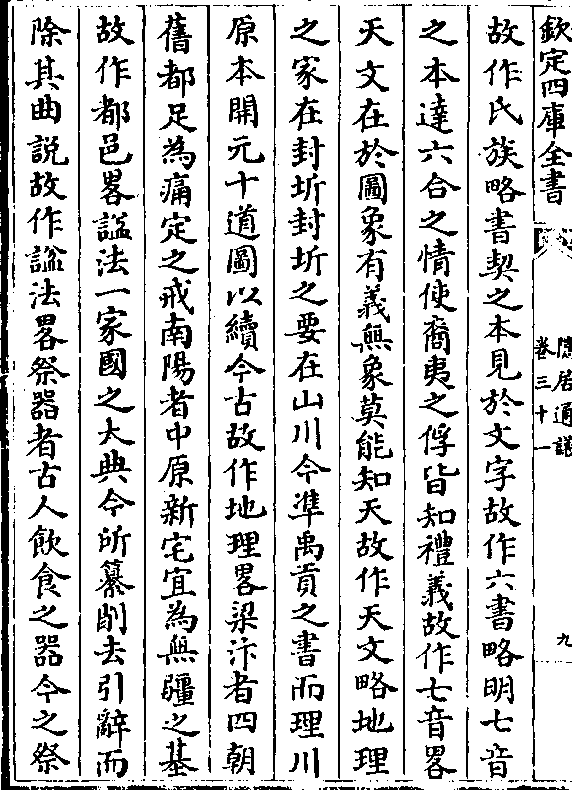 欽定四庫全書
隱居通議
卷三十一
九
故作氏族略書契之本見於文字故作六書略明七音
之本達六合之情使裔夷之俘皆知禮義故作七音畧
天文在於圖象有義無象莫能知天故作天文略地理
之家在封圻封圻之要在山川今準禹貢之書而理川
原本開元十道圖以續今古故作地理畧梁汴者四朝
舊都足為痛定之戒南陽者中原新宅宜為無疆之基
故作都邑畧諡法一家國之大典今所纂削去引辭而
除其曲説故作諡法畧祭器者古人飲食之器今之祭